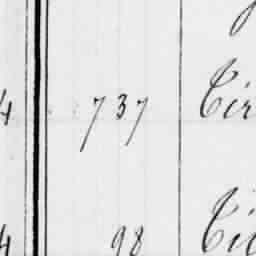 4 737 Cir
4 98